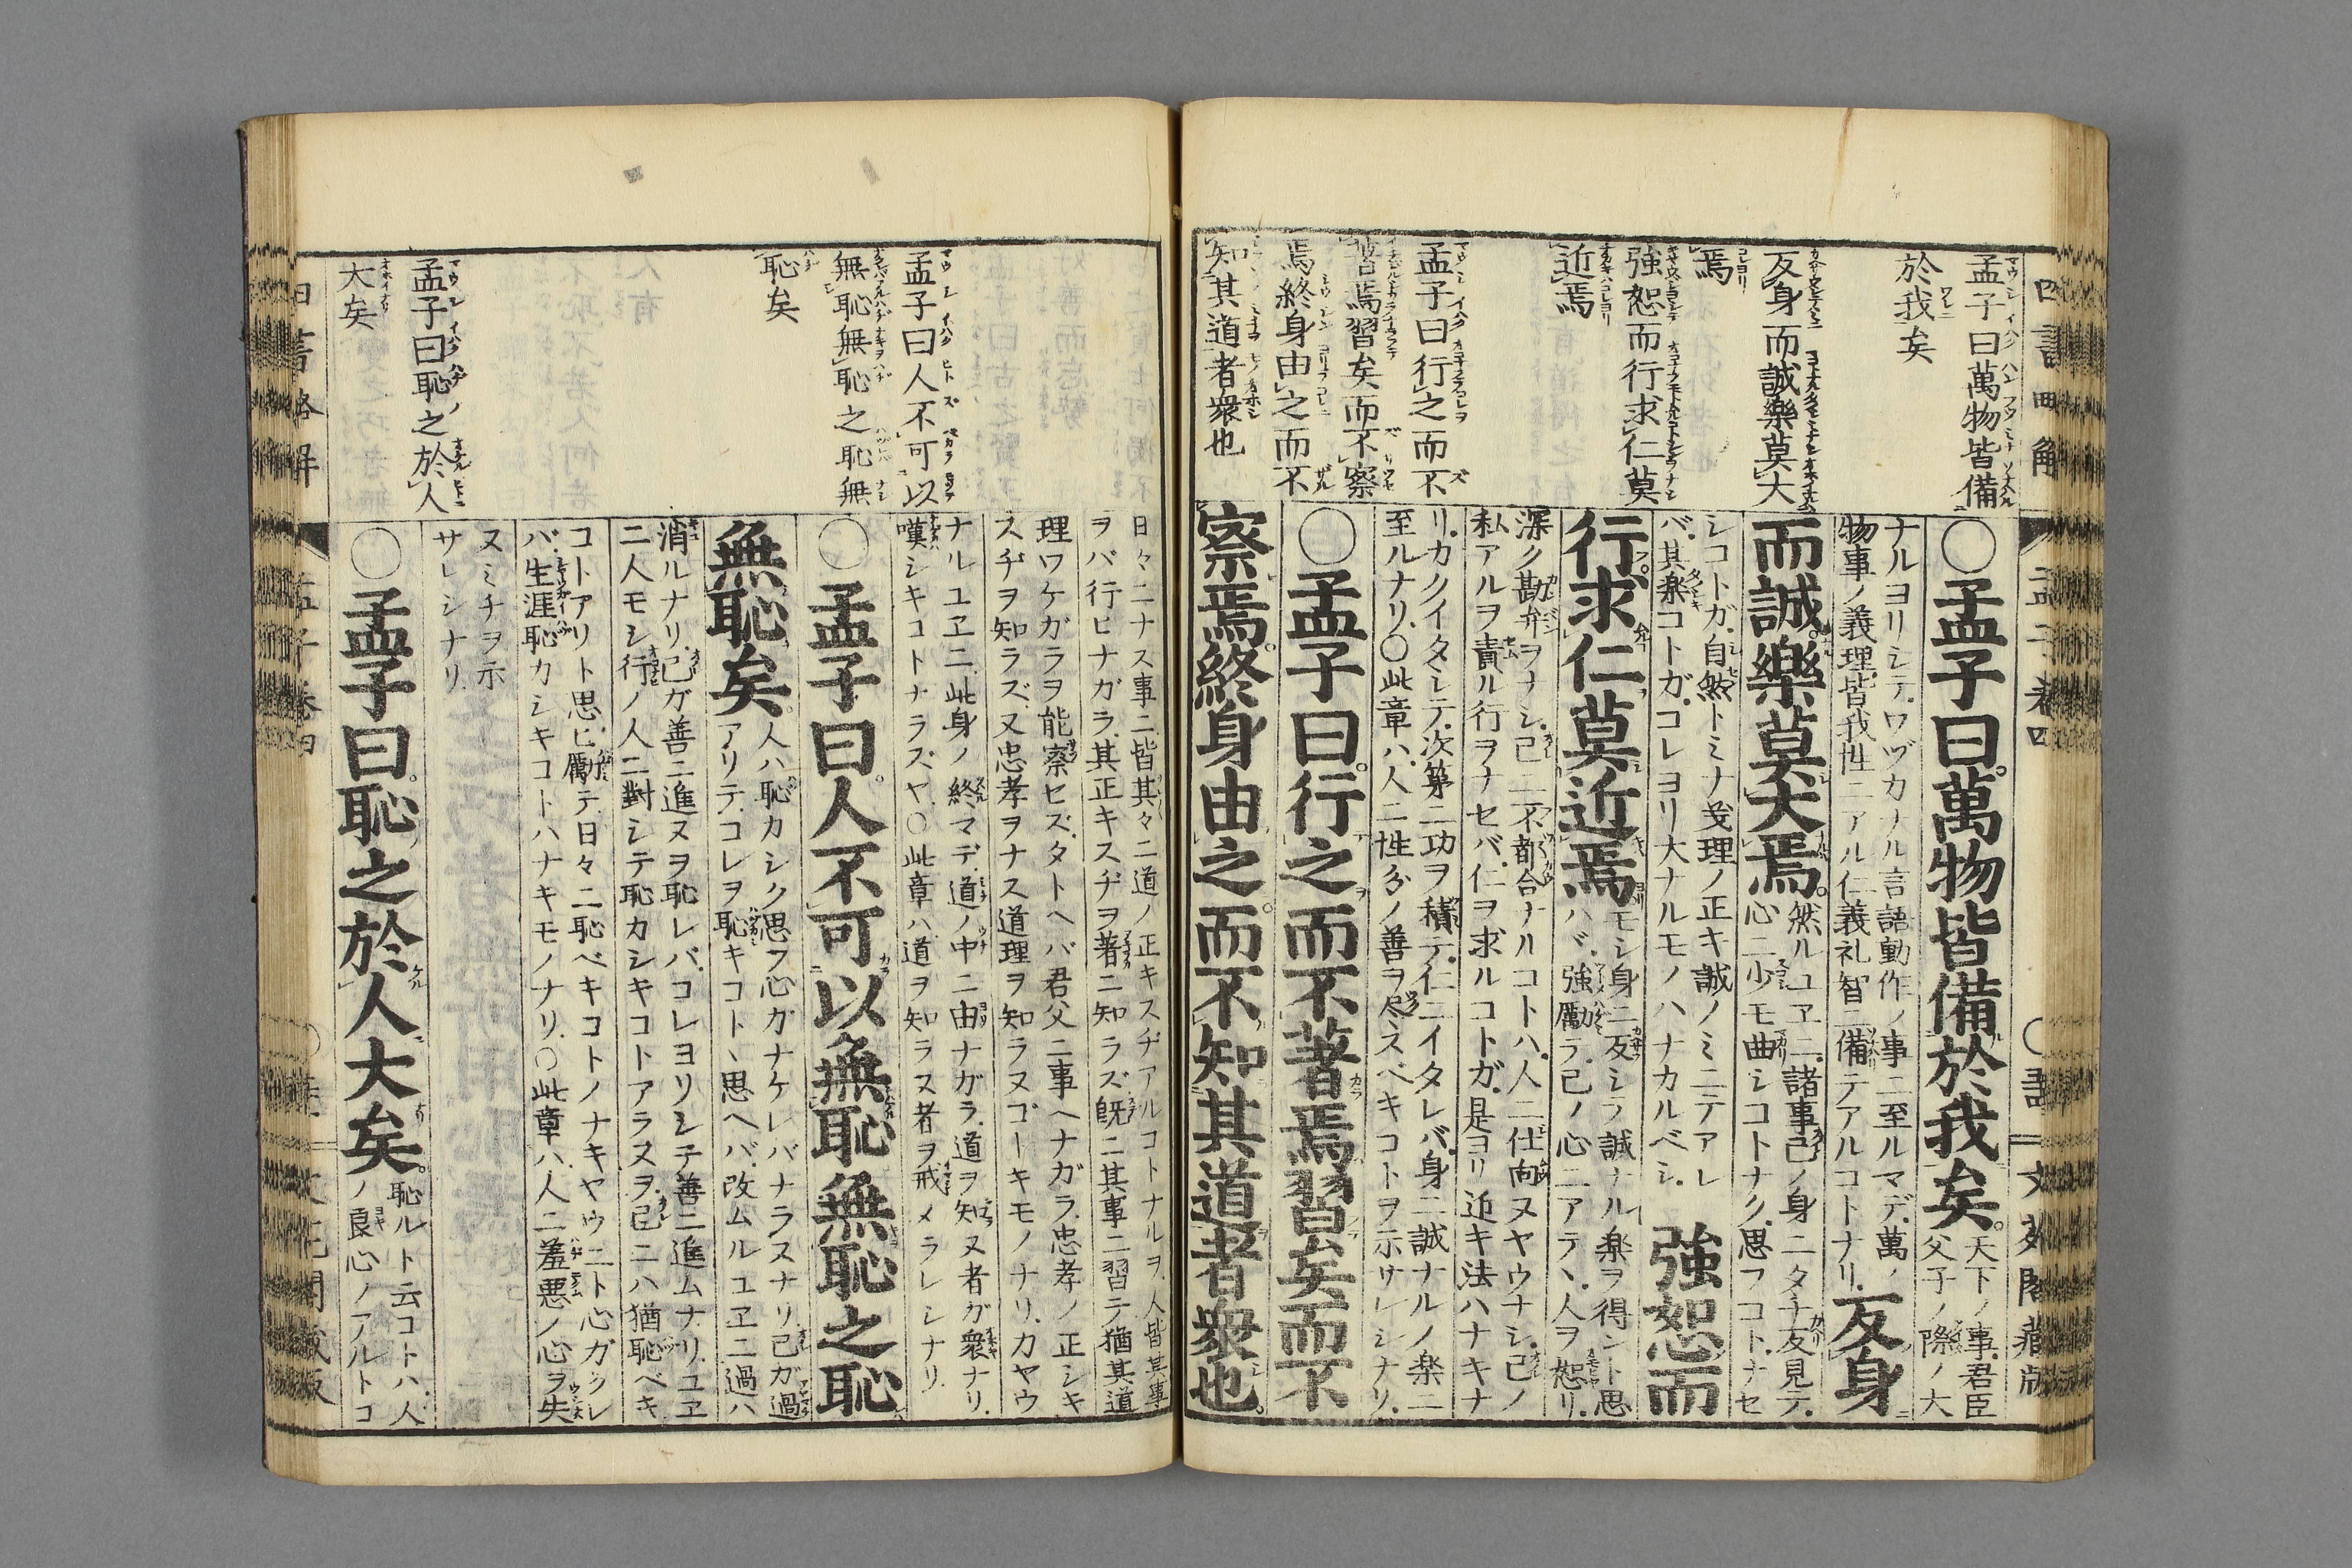 四書略解
孟子卷四
孟子曰萬物皆備
於我矣
反身而誠樂莫大
焉
強恕而行求仁莫
近焉
孟子曰行之而不
著焉習矣而不察
焉終身由之而不
知其道者衆也
○孟子曰萬物皆備於我矣。天下ノ事君臣
父子ノ際ノ大
ナルヨリシテワヅカナル言語動作ノ事ニ至ルマデ萬ノ
物事ノ義理皆我性ニアル仁義礼智ニ備テアルコトナリ反身
而誠樂莫大焉。然ルユヱニ諸事己ノ身ニタチ反見テ
心ニ少モ曲シコトナク思フコトナセ
シコトガ自然トミナ義理ノ正キ誠ノミニテアレ
バ其楽コトガコレヨリ大ナルモノハナカルベシ 強恕而
行求仁莫近焉モシ身ニ反シラ誠ナル楽ヲ得ント思
ハバ強勵ラ己ノ心ニアテヽ人ヲ恕リ
深ク勘弁ヲナシ己ニ不都合ナルコトハ人ニ仕向ヌヤウナシ己ノ
私アルヲ責ル行ヲナセバ仁ヲ求ルコトガ是ヨリ近キ法ハナキナ
リカクイタシテ次第ニ功ヲ積テ仁ニイタレバ身ニ誠ナルノ楽ニ
至ルナリ○此章ハ人ニ性分ノ善ヲ尽スベキコトヲ示サレシナリ
○孟子曰。行之而不著焉習矣而不
察焉。終身由之。而不知其道者衆也。
孟子曰人不可以
無恥無恥之恥無
恥矣
孟子曰恥之於人
大矣
日々ニナス事ニ皆其々ニ道ノ正キスヂアルコトナルヲ人皆其事
ヲバ行ヒナガラ其正キスヂヲ著ニ知ラズ既ニ其事ニ習テ猶其道
理ワケガラヲ能察セズタトヘバ君父ニ事ヘナガラ忠孝ノ正シキ
スヂヲ知ラズ又忠孝ヲナス道理ヲ知ラヌゴーキモノナリカヤウ
ナルユヱニ此身ノ終マデ道ノ中ニ由ナガラ道ヲ知ヌ者ガ衆ナリ
嘆シキコトナラズヤ○此章ハ道ヲ知ラヌ者ヲ戒メラレシナリ
○孟子曰。人不可以無恥無恥之恥
無恥矣。人ハ恥カシク思フ心ガナケレバナラヌナリ己ガ過
アリテコレヲ恥キコトヽ思ヘバ改ムルユヱニ過ハ
消ルナリ己ガ善ニ進ヌヲ恥レバコレヨリシテ善ニ進ムナリユヱ
ニ人モシ行ノ人ニ對シテ恥カシキコトアラヌヲ己ニハ猶恥ベキ
コトアリト思ヒ勵テ日々ニ恥ベキコトノナキヤウニト心ガクレ
バ生涯恥カシキコトハナキモノナリ○此章ハ人ニ羞悪ノ心ヲ失
ヌミチヲ示
サレシナリ
○孟子曰。恥之於人大矣。恥ルト云コトハ人
ノ良心ノアルトコ
四書略解
孟子卷四